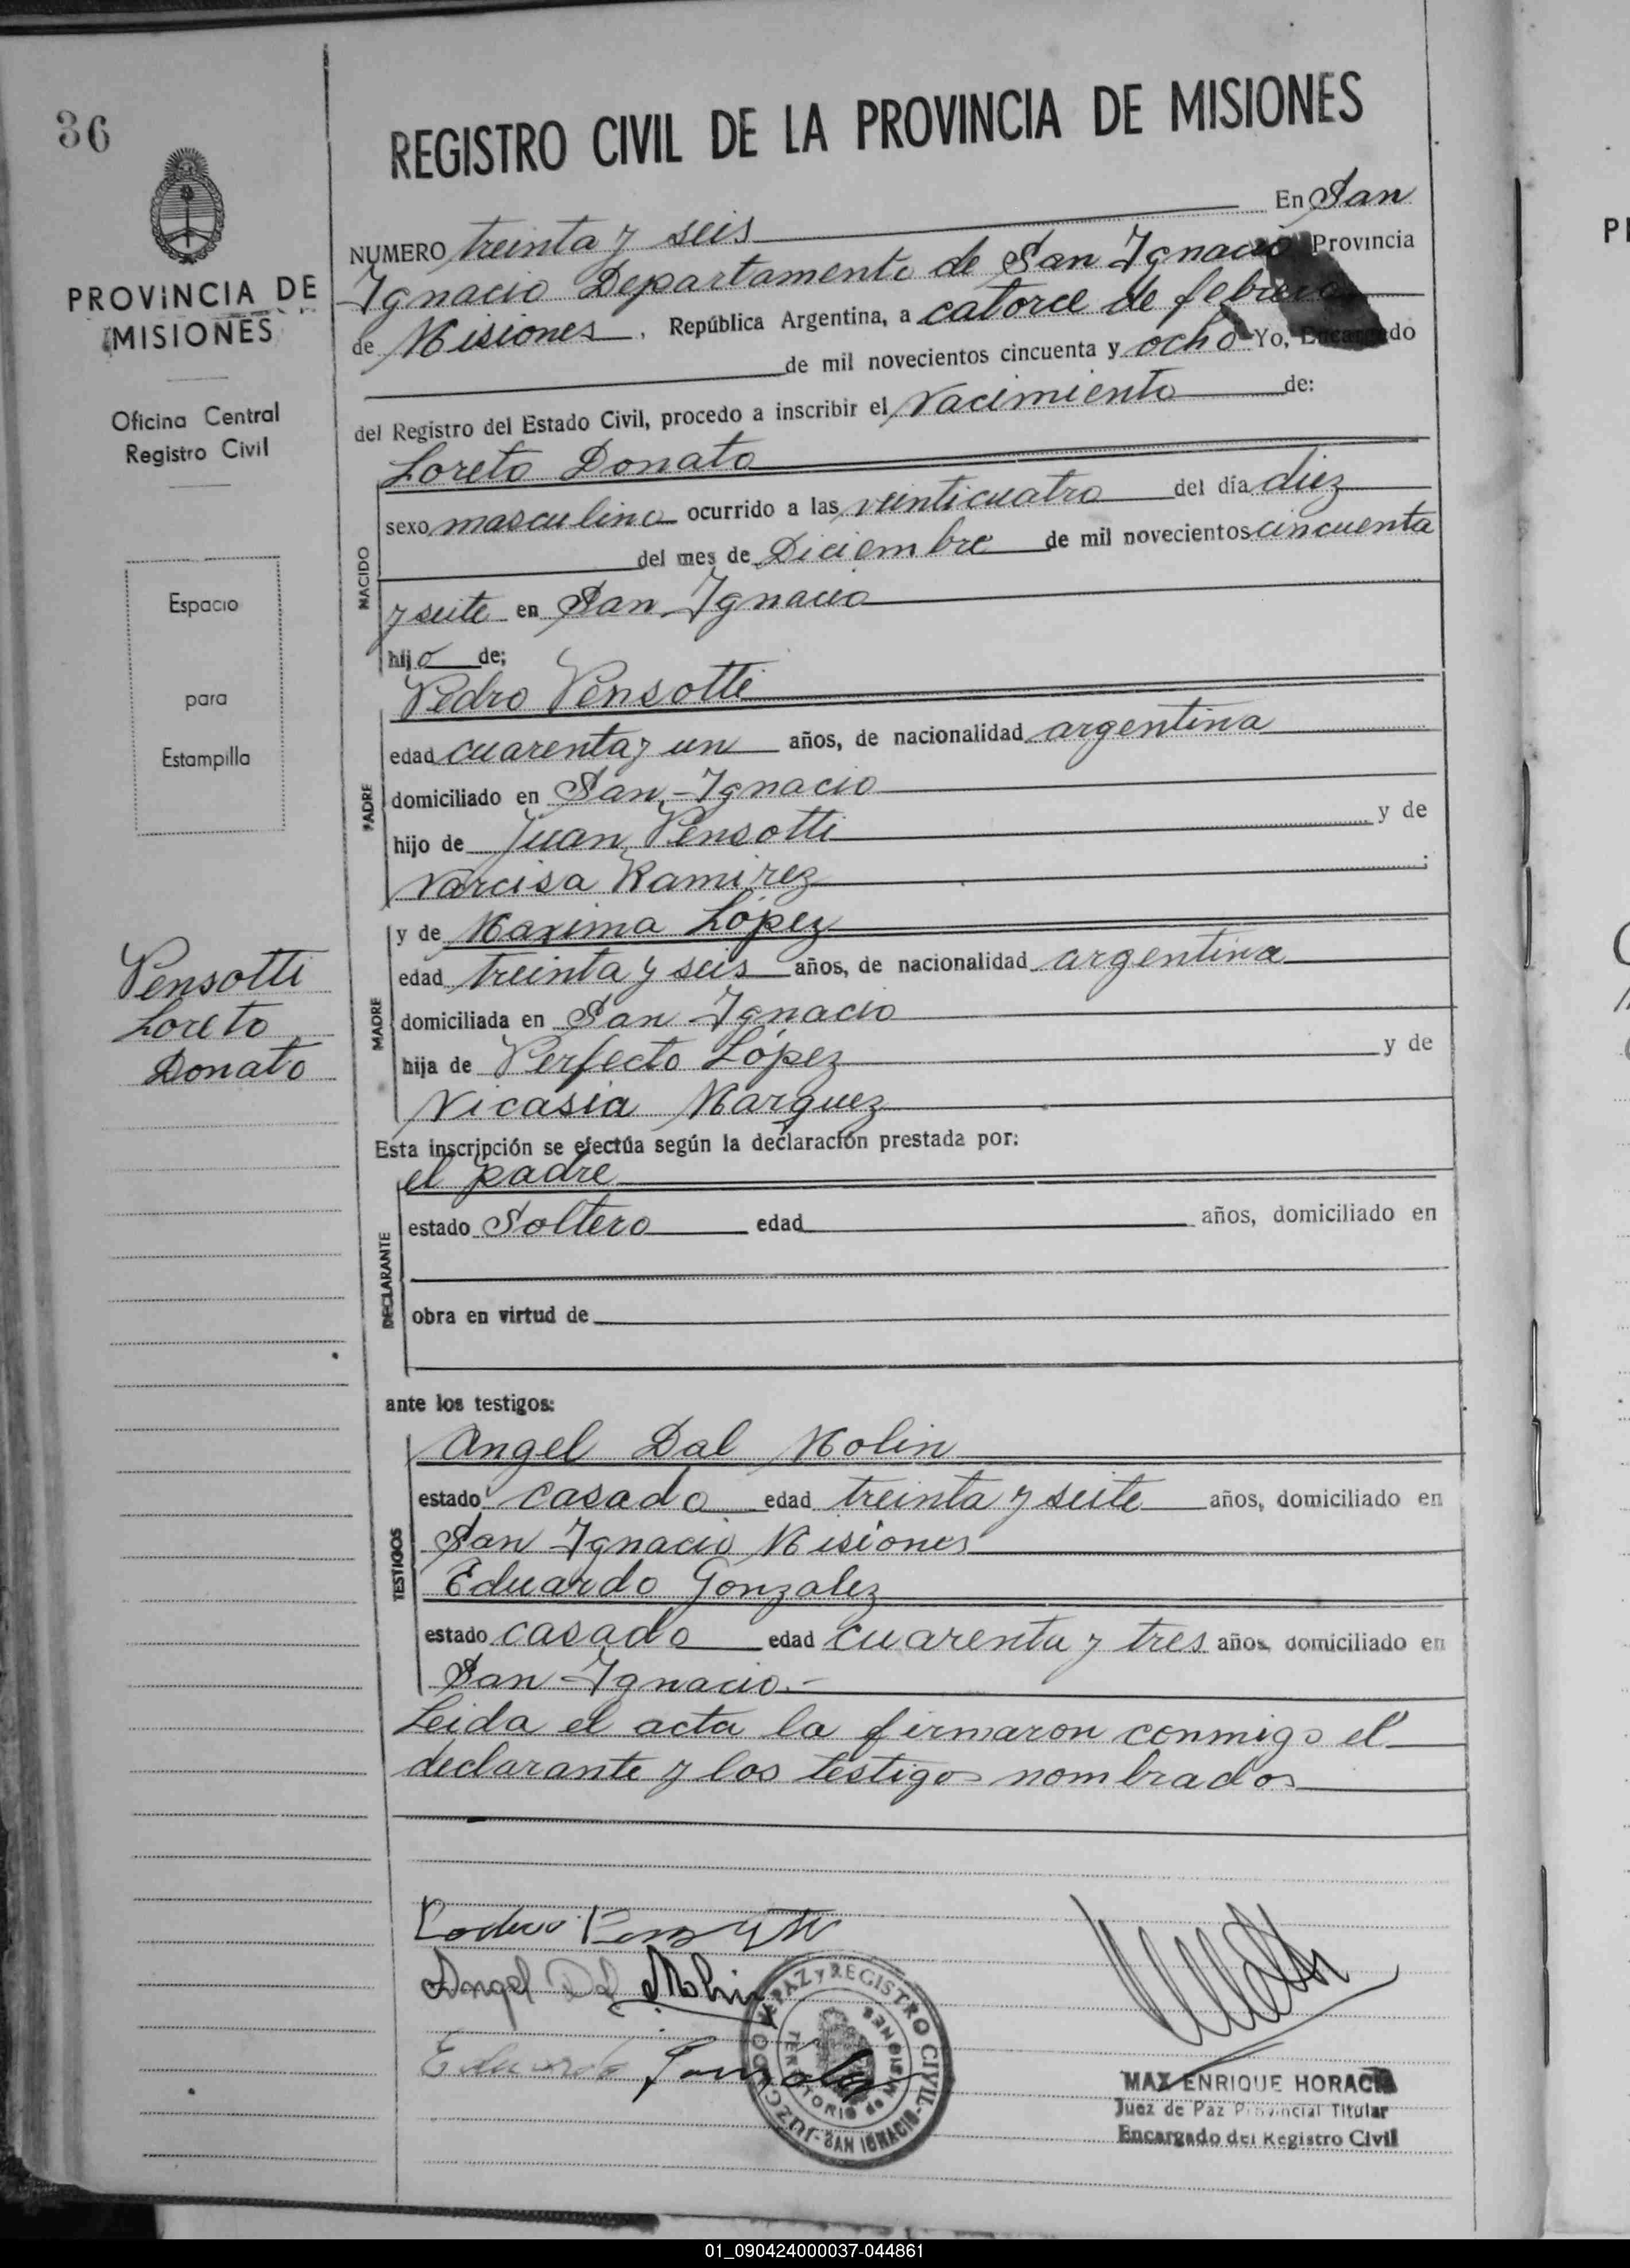 36
PROVINCIA DE
MISIONES
Oficina Central
Registro Civil
Espacio
para
Estampilla
Pensotti
Loreto
Donato
REGISTRO CIVIL DE LA PROVINCIA DE MISIONES
NUMERO treinta y seis En San
Ignacio Departamento de San Ignacio Provincia
de Misiones, República Argentina, a catorce de febrero
de mil novecientos cincuenta y ocho Yo, Encargado
del Registro del Estado Civil, procedo a inscribir el Nacimiento de:
NACIDO
Loreto Donato
sexo masculino ocurrido a las veinticuatro del día diez
del mes de Diciembre de mil novecientos cincuenta
y seite en San Ignacio
hijo de;
PADRE
Pedro Pensotti
edad cuarenta y un años, de nacionalidad argentina
domiciliado en San-Ignacio
hijo de Juan Pensotti y de
Narcisa Ramirez;
MADRE
y de Maxima López
edad treinta y seis años, de nacionalidad argentina
domiciliada en San Ignacio
hija de Perfecto López y de
Nicasia Marquez
Esta inscripción se efectúa según la declaración prestada por:
DECLARANTE
el padre
estado Soltero edad años, domiciliado en
obra en virtud de
ante los testigos:
TESTIGOS
Angel Dal Molin
estado casado edad treinta y seite años, domiciliado en
San Ignacio Misiones
Eduardo Gonzalez
estado casado edad cuarenta y tres años, domiciliado en
San-Ignacio.-
Leida el acta la firmaron conmigo el
declarante y los testigos nombrados
Angel Dal Molin
Eduardo Gonzalez
JUZGADO DE PAZ Y REGISTRO CIVIL
SAN IGNACIO
TERRITORIO de MISIONES
MAX ENRIQUE HORACIO
Juez de Paz Provincial Titular
Encargado del Registro Civil
01_090424000037-044861